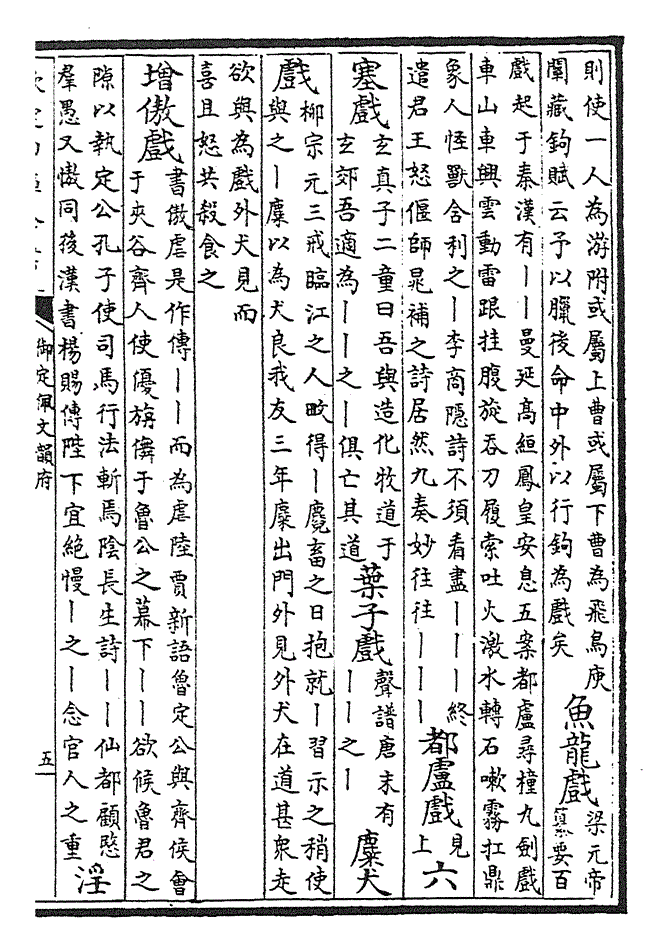 則使一人為游附或屬上曹或屬下曹為飛鳥庾
闡藏鉤賦云予以臘後命中外以行鉤為戲矣
魚龍戲
梁元帝
纂要百
戲起于秦漢有丨丨曼延高絙鳳皇安息五案都盧尋橦九劍戲
車山車興雲動雷跟挂腹旋吞刀履索吐火激水轉石嗽霧扛鼎
象人怪獸舍利之丨李商隱詩不須看盡丨丨丨終
遣君王怒偃師晁補之詩居然九奏妙往往丨丨丨
都盧戲
見
上
六
塞戲
玄真子二童曰吾與造化牧道于
玄郊吾適為丨丨之丨俱亡其道
葉子戲
聲譜唐末有
丨丨之丨
麋犬
戲
柳宗元三戒臨江之人畋得丨麑畜之日抱就丨習示之稍使
與之丨麋以為犬良我友三年麋出門外見外犬在道甚衆走
欲與為戲外犬見而
喜且怒共殺食之
增傲戲
書傲虐是作傳丨丨而為虐陸賈新語魯定公與齊侯會
于夾谷齊人使優旃儛于魯公之幕下丨丨欲候魯君之
隙以執定公孔子使司馬行法斬焉陰長生詩丨丨仙都顧愍
羣愚又慠同後漢書楊賜傳陛下宜絕慢丨之丨念官人之重
淫
御定佩文韻府
五